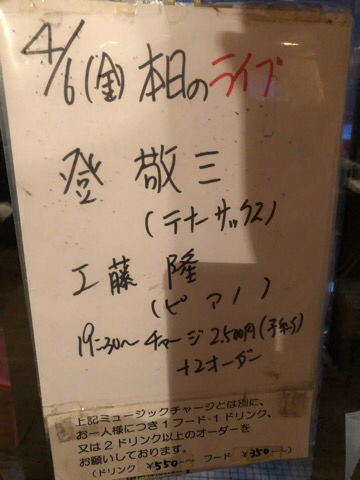 4/6(金)本日のライブ
登 敬三
(テナーサックス)
工藤 隆
(ピアノ)
19:30〜 チャージ 2,500円(予約)
+2オーダー
上記ミュージックチャージとは別に、
お一人様につき1フード・1ドリンク、
又は2ドリンク以上のオーダーを
お願いしております。
(ドリンク ¥550〜 フード ¥350〜)